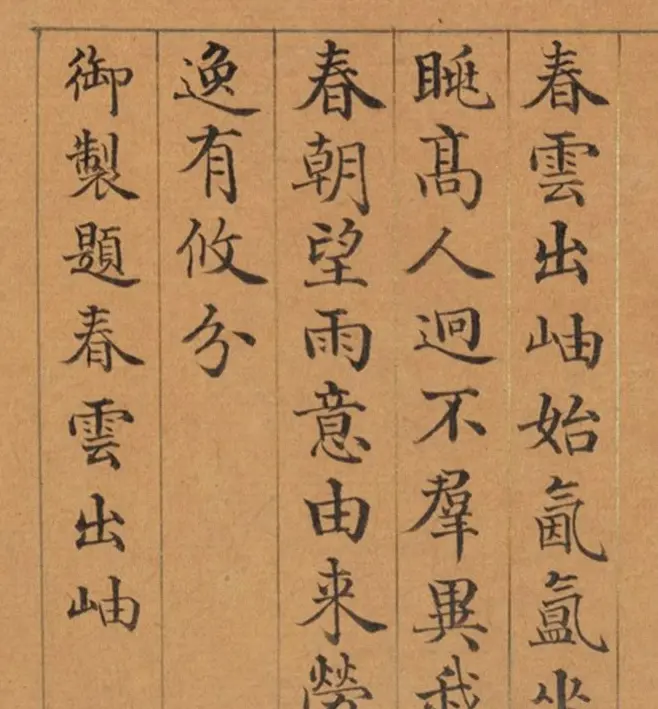 春雲出岫始氤氳坐
眺髙人迥不羣異我
春朝望雨意由来勞
逸有攸分
御製題春雲出岫